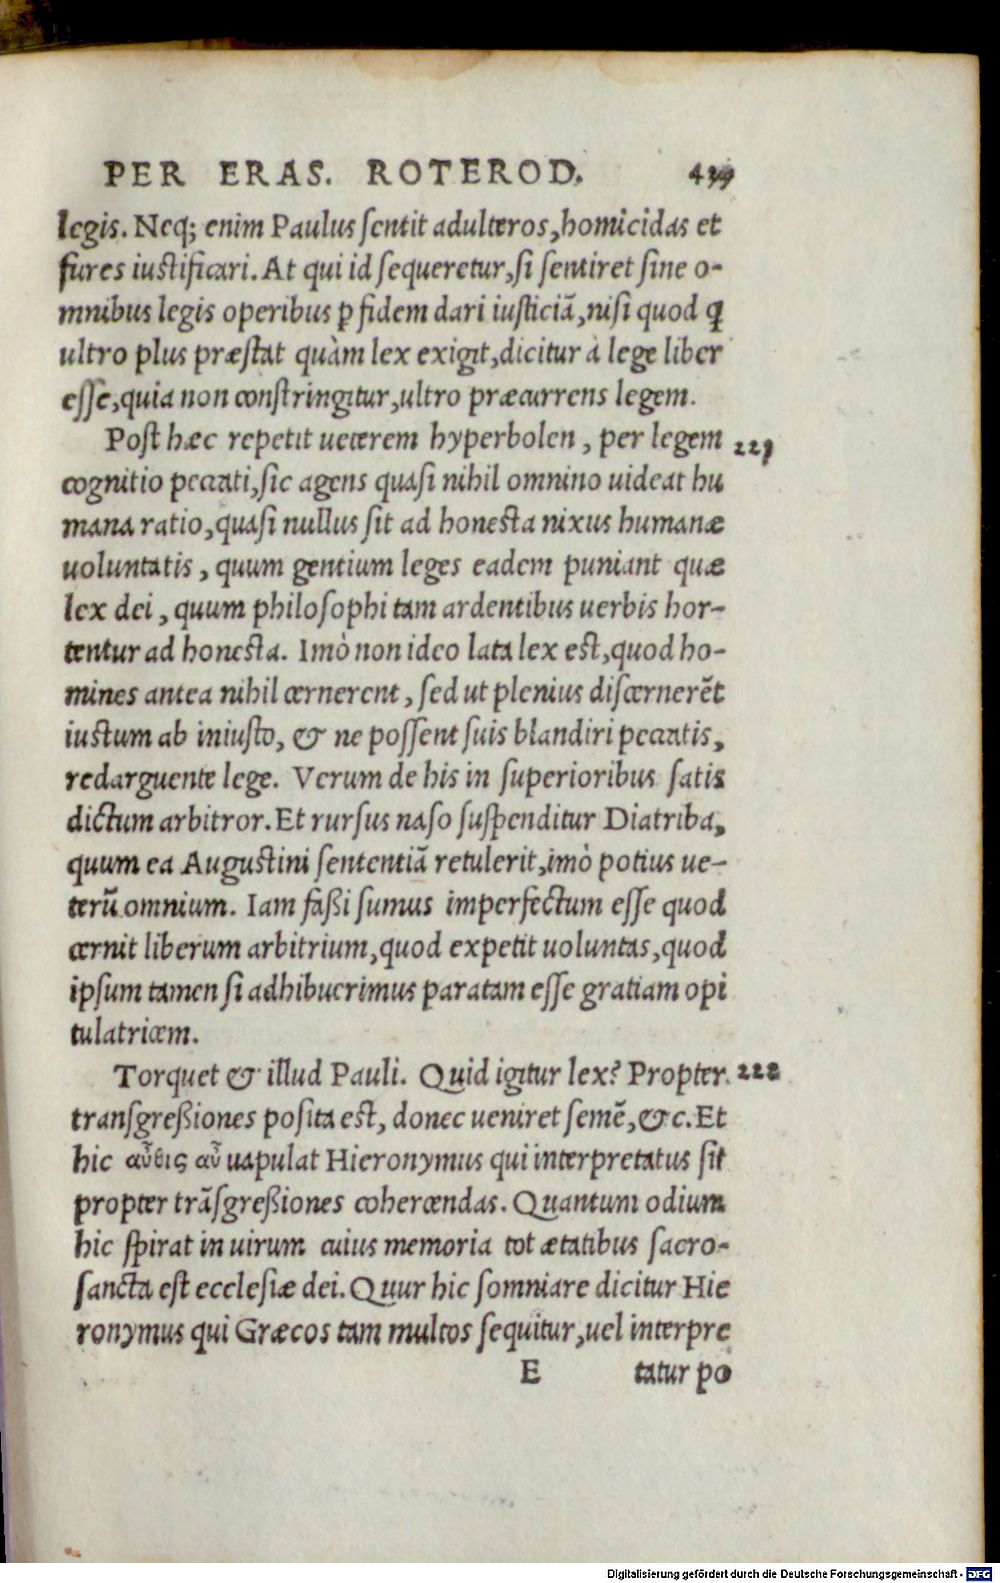 PER ERAS. ROTEROD. 429
legis. Neq; enim Paulus sentit adulteros, homicidas et
fures iustificari. At qui id sequeretur, si sentiret sine o-
mnibus legis operibus ꝑ fidem dari iusticiã, nisi quod ꝗ
ultro plus præstat quàm lex exigit, dicitur à lege liber
esse, quia non constringitur, ultro præcurrens legem.
Post hæc repetit ueterem hyperbolen, per legem 221
cognitio peccati, sic agens quasi nihil omnino uideat hu
mana ratio, quasi nullus sit ad honesta nixus humanæ
uoluntatis, quum gentium leges eadem puniant quæ
lex dei, quum philosophi tam ardentibus uerbis hor-
tentur ad honesta. Imò non ideo lata lex est, quod ho-
mines antea nihil cernerent, sed ut plenius discernerẽt
iustum ab iniusto, & ne possent suis blandiri peccatis,
redarguente lege. Verum de his in superioribus satis
dictum arbitror. Et rursus naso suspenditur Diatriba,
quum ea Augustini sententiã retulerit, imò potius ue-
terũ omnium. Iam faßi sumus imperfectum esse quod
cernit liberum arbitrium, quod expetit uoluntas, quod
ipsum tamen si adhibuerimus paratam esse gratiam opi
tulatricem.
Torquet & illud Pauli. Quid igitur lex? Propter 222
transgreßiones posita est, donec ueniret semẽ, &c. Et
hic αὖθις αὖ uapulat Hieronymus qui interpretatus sit
propter trãsgreßiones cohercendas. Quantum odium
hic spirat in uirum cuius memoria tot ætatibus sacro-
sancta est ecclesiæ dei. Quur hic somniare dicitur Hie
ronymus qui Græcos tam multos sequitur, uel interpre
E tatur po
Digitalisierung gefördert durch die Deutsche Forschungsgemeinschaft - DFG